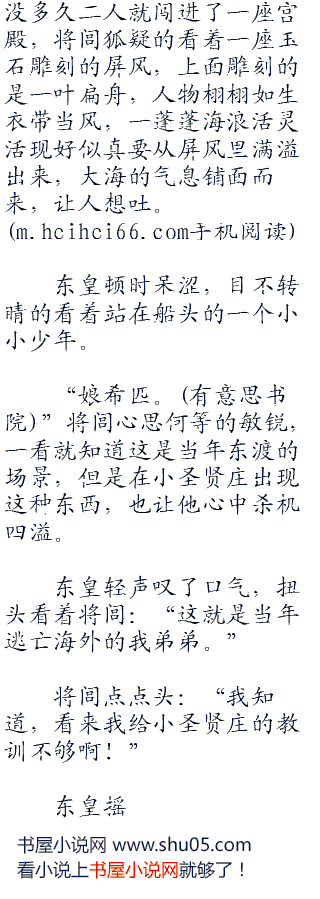 没多久二人就闯进了一座宫
殿，将闾狐疑的看着一座玉
石雕刻的屏风，上面雕刻的
是一叶扁舟，人物栩栩如生
衣带当风，一蓬蓬海浪活灵
活现好似真要从屏风里满溢
出来，大海的气息铺面而
来，让人想吐。
(m.hcihci66.com手机阅读)
东皇顷时呆涩，目不转
睛的看着站在船头的一个小
小少年。
“娘希匹。(有意思书
院)”将闾心思何等的敏锐，
一看就知道这是当年东渡的
场景，但是在小圣贤庄出现
这种东西，也让他心中杀机
四溢。
东皇轻声叹了口气，扭
头看着将闾：“这就是当年
逃亡海外的我弟弟。”
将闾点点头：“我知
道，看来我给小圣贤庄的教
训不够啊！”
东皇摇
书屋小说网 www.shu05.com
看小说上书屋小说网就够了！